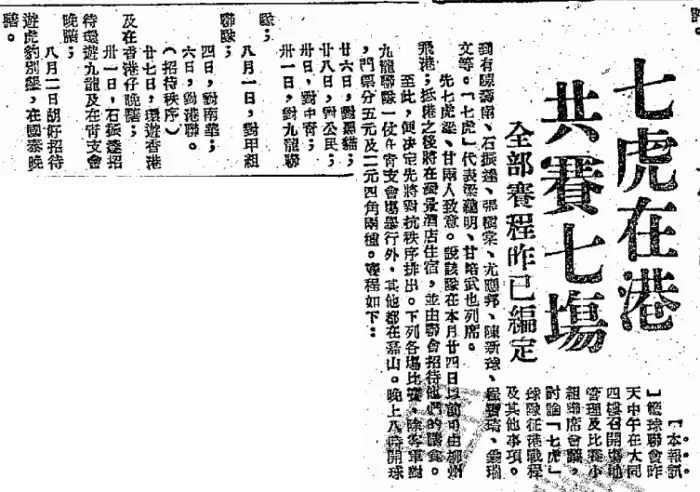 七虎在港
共賽七場
全部賽程昨已編定
【本報訊
】籃球聯會昨
天中午在大同
四樓召開場地
管理及比賽小
組聯席會議,
討論「七虎」
球隊征港戰程
及其他事項。
到有陳濤南、石振達、張樹棠、尤應邦、陳新球、寶琦、翁瑞
文等。「七虎」代表梁蘊明、甘焰武也列席。
先七虎梁、甘兩人致意。說該隊在本月廿四日以前可由柳州
飛港;抵港之後將在海景酒店住宿,並由聯會招待他們的膳食。
至此,便决定先將對抗秩序排出。下列各場比賽,除客軍對
九龍聯隊一仗在青支會場舉行外,其他都在嘉山。晚上八時開球
,門票分五元及二元四角兩種。賽程如下:
廿六日,對黑貓;
廿八日,對公民;
卅日,對中青;
卅一日,對九龍聯
隊;
八月一日,對甲組
聯隊;
四日,對南華;
六日,對港聯。
(招待秩序)
廿七日,環遊香港
及在香港仔晚膳;
卅一日,石振達招
待環遊九龍及在青支會
晚膳;
八月二日胡好招待
遊虎豹別墅,在國泰晚
膳。